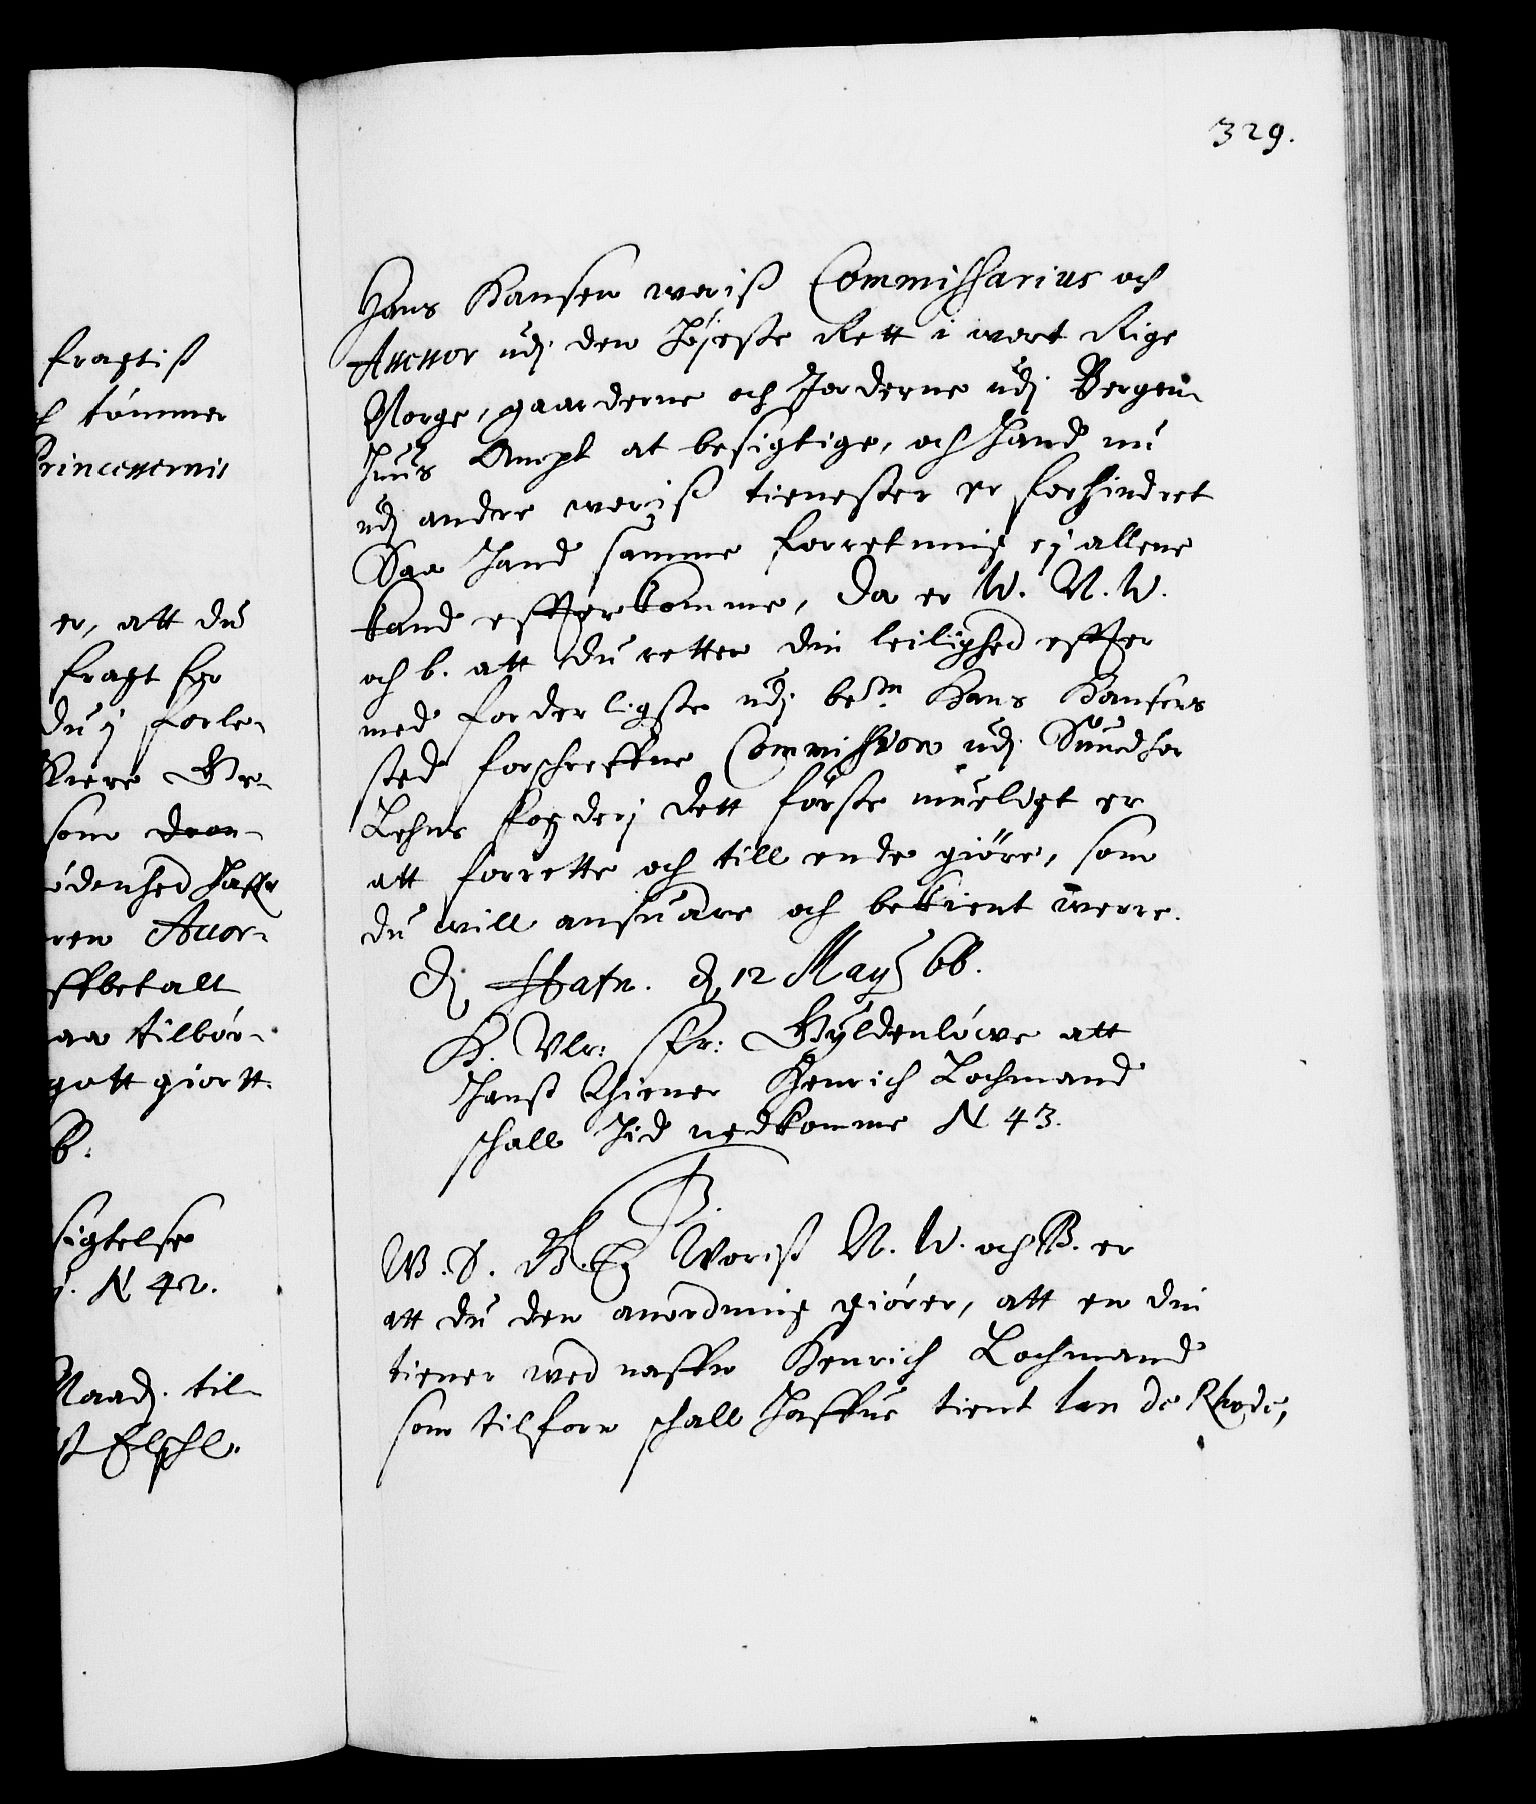 329.
fragtiß
tömmer
Princessernis
er, att du
fragt for
du i forle-
som
ödenhed haffr
ren Accor-
ffbetalt
aa tilbör-
gott giortt.
sigtelse
N 42.
Naad. til-
Hans Hansen woriß Commissarius och
Assessor udj den höjeste Rett i wort Rige
Norge, gaarderne och Jorderne udj Bergen-
huus Ampt at besigtige, och hand nu
udj andre woriß tienester er forhindret
Saa hand samme forretning ej allene
kand effterkomme, da er W. N. W.
och b. att du retter din leilighed effter
med forderligste udj bete Hans Hansens
sted forschreffne Commission udj Sundhor
Lehns fogderj dett förste mueligt er
att forrette och till ende giöre, som
du will ansuare och bekient were.
Dj Hafn. d. 12 Maij 66.
H. Vlr: Fr: Gyldenlöwe att
hanß thiener Henrich Lochmand
schall hid nedkomme N 43.
W. S. G. E. Woriß N. W. och B. er
att du den anordning giörer, att en din
tiener wed naffn Henrich Lochmand
som tilforn schall haffue tient Jan de Rhode,